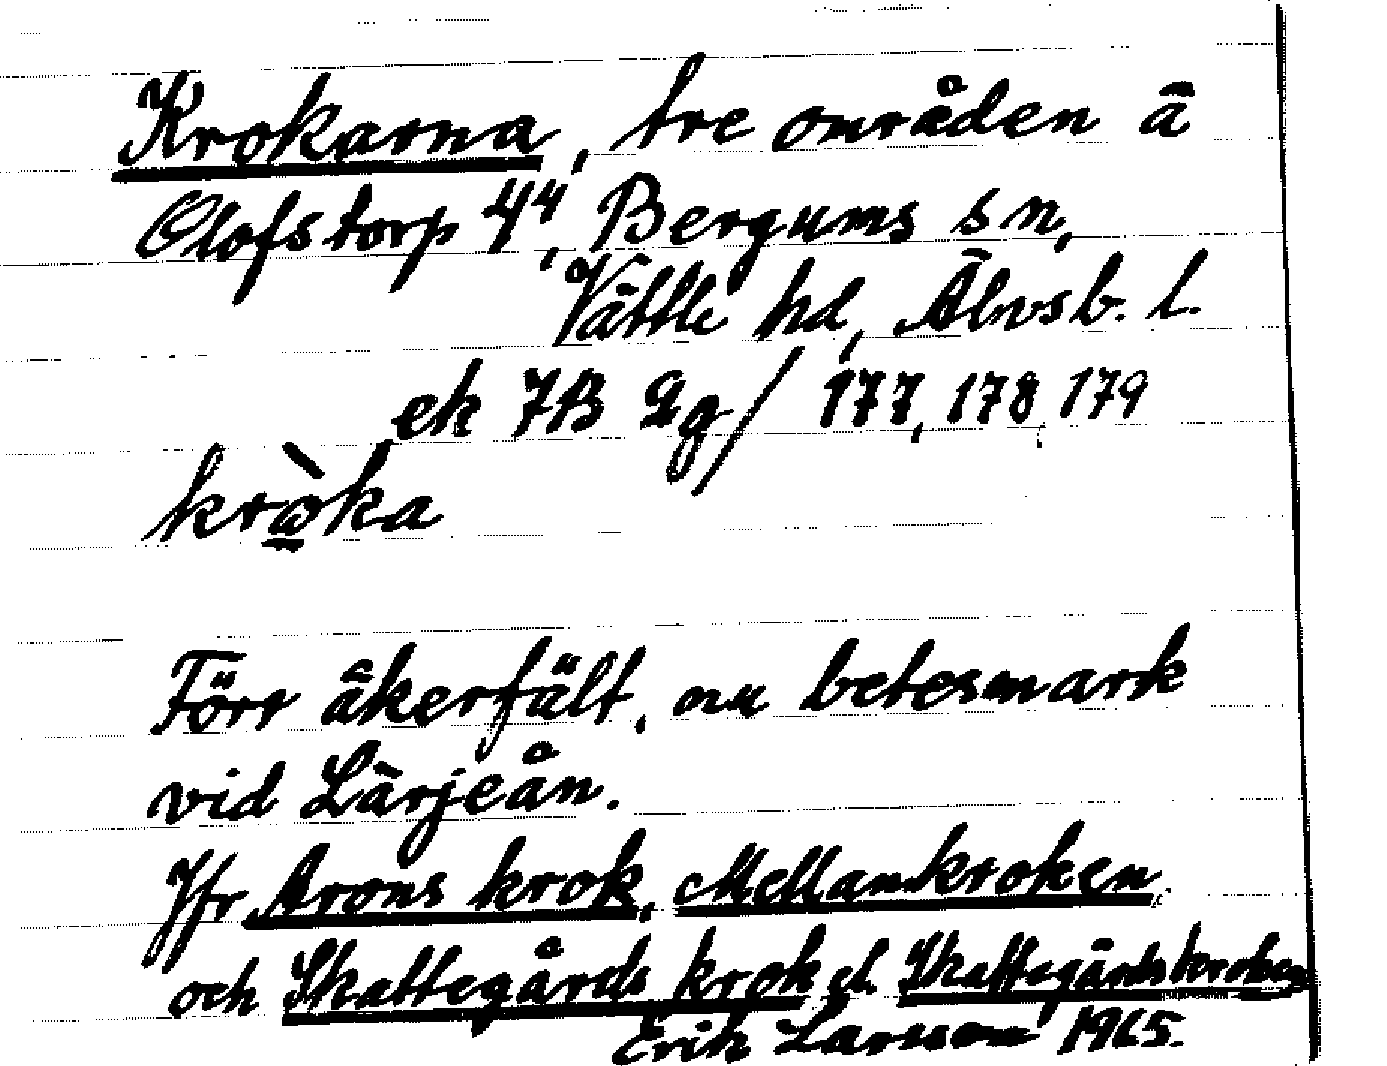 Krokarna, tre områden å
Olofstorp 4⁴, Bergums sn,
Vättle hd, Älvsb. l.
ek 7B 2g/ 177, 178, 179
krò̱ka
Förr åkerfält, nu betesmark
vid Lärjeån.
Jfr Arons krok, Mellankroken
och Skattegårds krok el. Skattegårdskroken
Erik Larsson 1965.